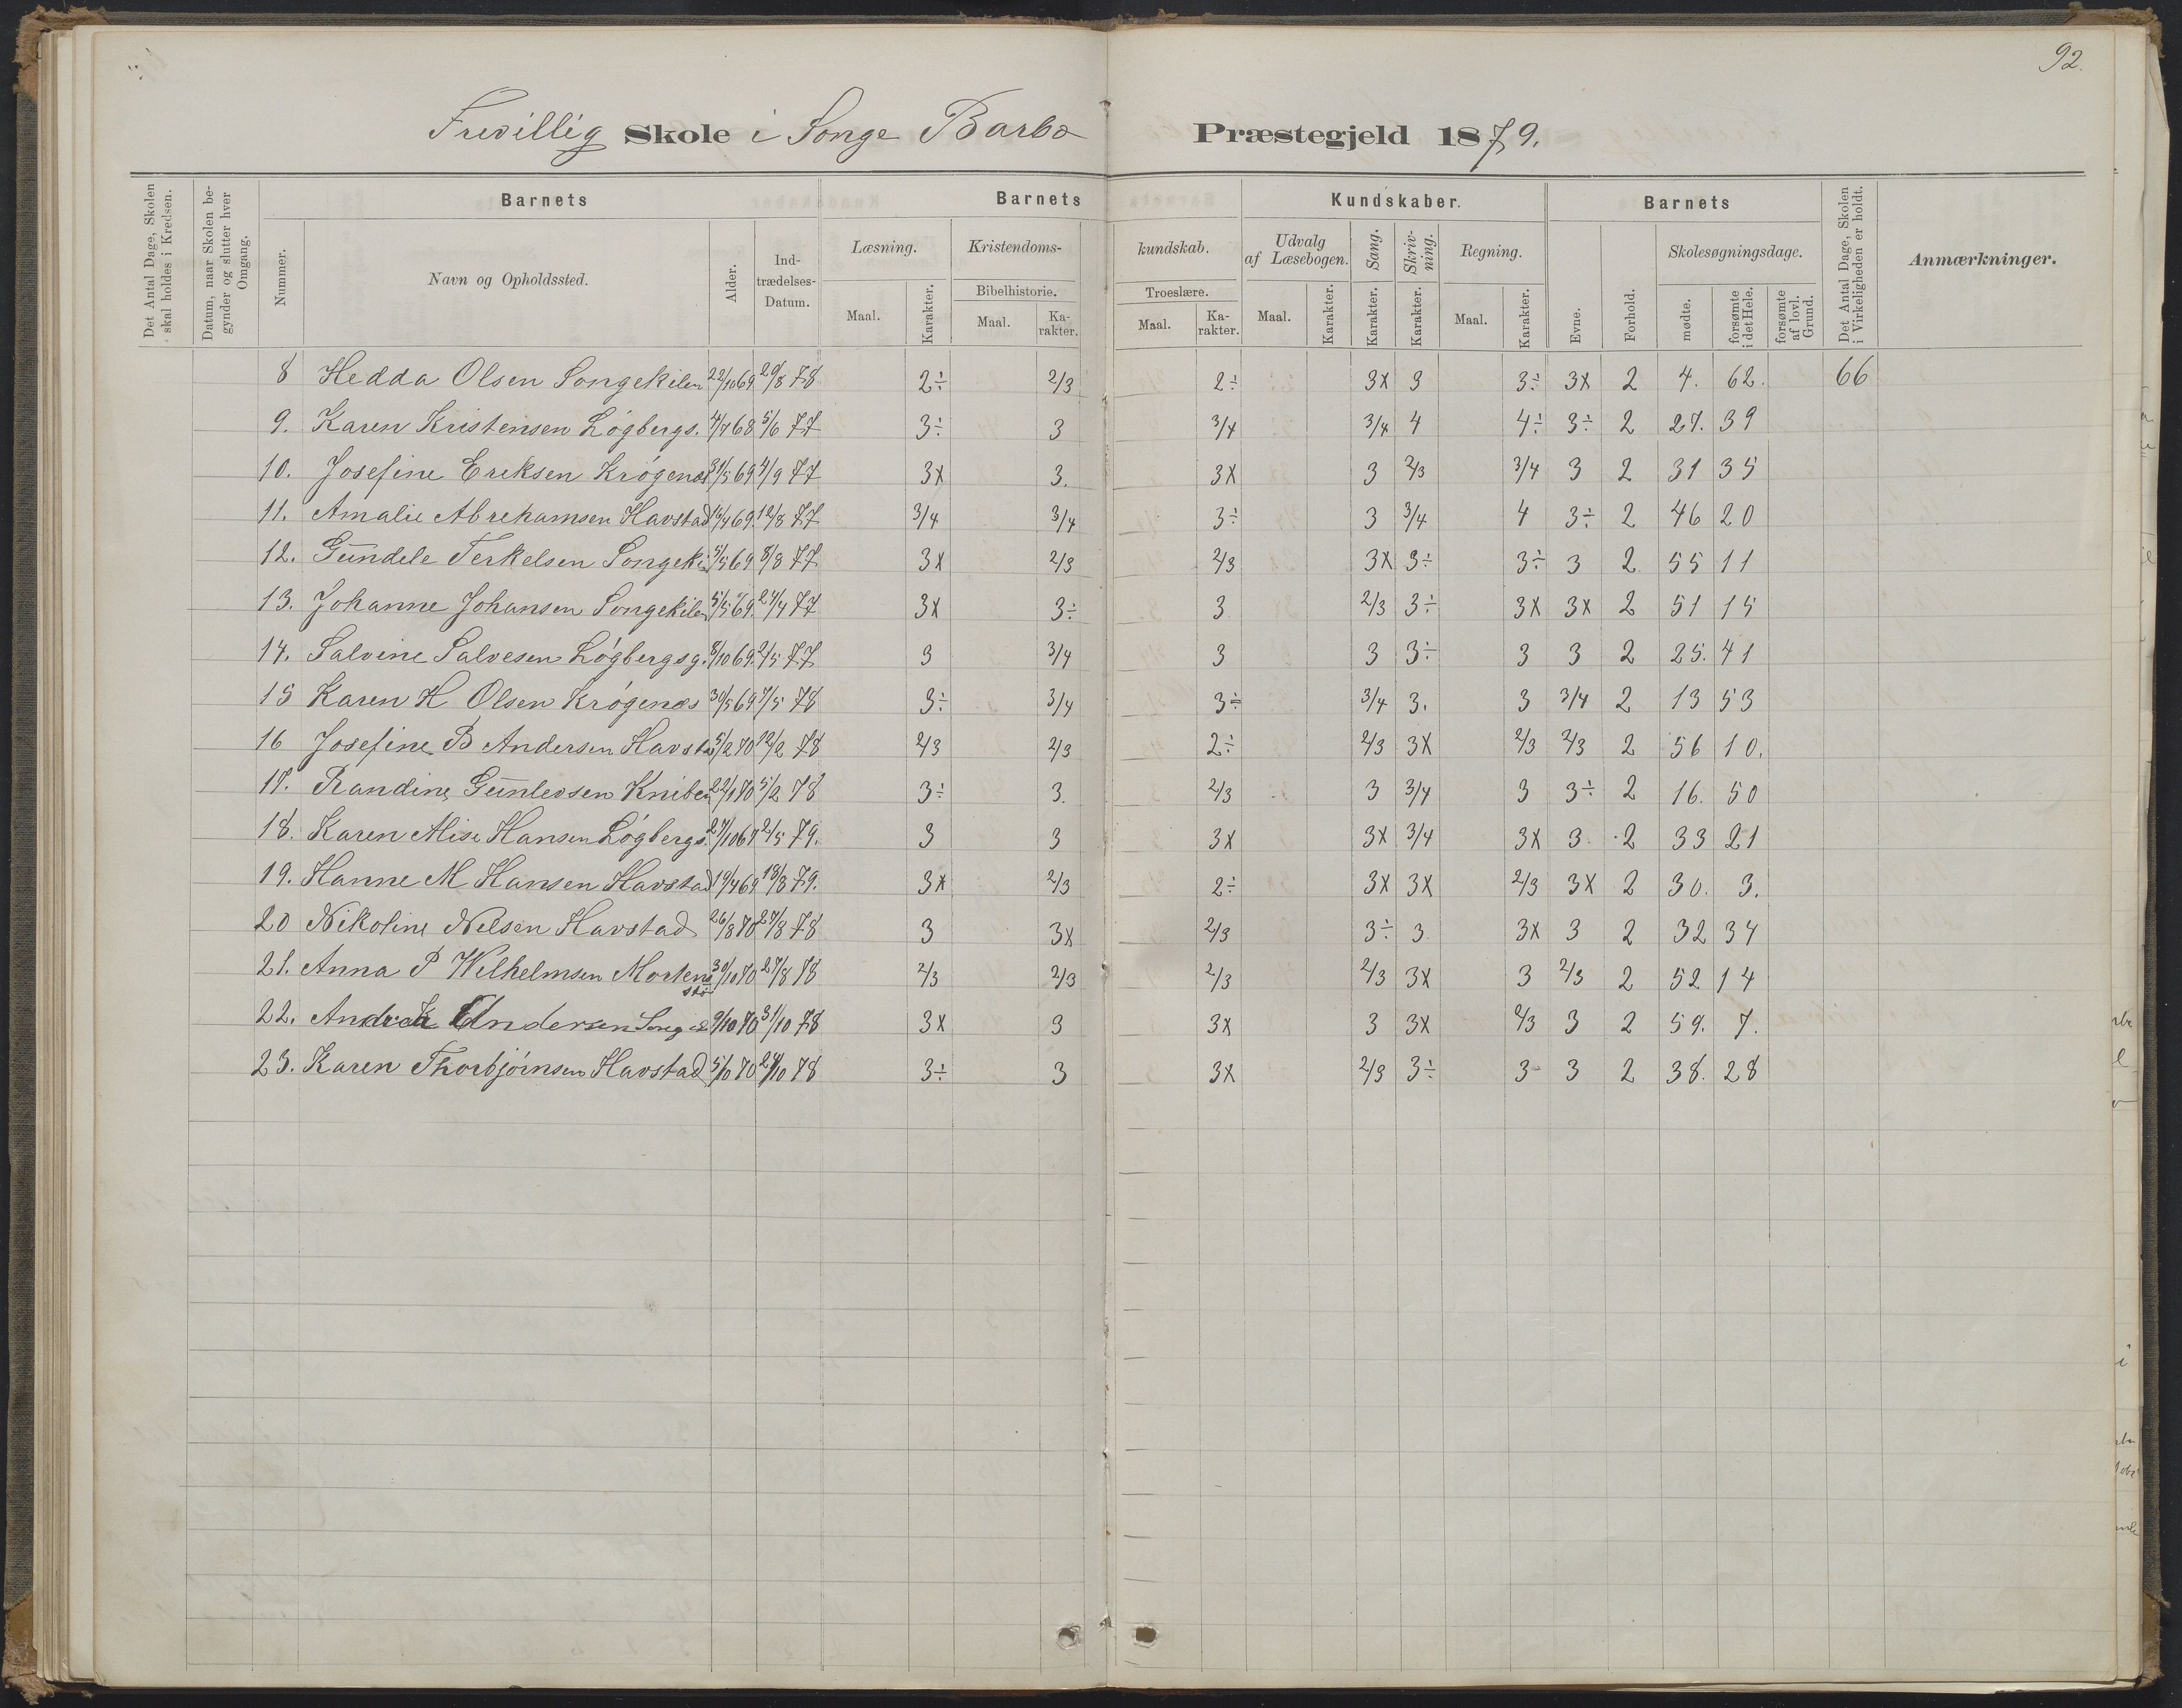 92.
Frivillig Skole i Songe Barbo Præstegjeld 1879.
Det Antal Dage, Skolen skal holdes i Kredsen.
Datum, naar Skolen begynder og slutter hver Omgang.
Barnets Barnets Kundskaber. Barnets
Nummer. Navn og Opholdssted. Alder. Indtrædelses-Datum. Læsning. Kristendoms- kundskab. Udvalg af Læsebogen. Sang. Skrivning. Regning. Evne. Forhold. Skolesøgningsdage. Det Antal Dage, Skolen i Virkeligheden er holdt. Anmærkninger.
Bibelhistorie. Troeslære.
Maal. Karakter. Maal. Karakter. Maal. Karakter. Maal. Karakter. Karakter. Karakter. Maal. Karakter. mødte. forsømte i det Hele. forsømte af lovl. Grund.
8 Hedda Olsen Songekilen 22/10 69 20/8 78 2÷ 2/3 2÷ 3x 3 3÷ 3x 2 4. 62. 66
9. Karen Kristensen Løgbergs. 4/7 68 5/6 77 3÷ 3 3/4 3/4 4 4÷ 3÷ 2 27. 39
10. Josefine Eriksen Krøgenæs 31/5 69 4/9 77 3x 3. 3x 3 2/3 3/4 3 2 31 35
11. Amalie Abrehamsen Havstad 16/4 69. 12/8 77 3/4 3/4 3÷ 3 3/4 4 3÷ 2 46 20
12. Gundele Terkelsen Songeki 5/5 69 8/8 77 3x 2/3 2/3 3x 3÷ 3÷ 3 2 55 11
13. Johanne Johansen Songekilen 5/5 69. 27/4 77 3x 3÷ 3 2/3 3÷ 3x 3x 2 51 15
14. Salvine Salvesen Løgbergsg. 8/10 69. 2/5 77 3 3/4 3 3 3÷ 3 3 2 25. 41
15 Karen H Olsen Krøgenæs 30/5 69 7/5 78 3÷ 3/4 3÷ 3/4 3. 3 3/4 2 13 53
16 Josefine B Andersen Havsta 5/2 70 12/2 78 2/3 2/3 2÷ 2/3 3x 2/3 2/3 2 56 10.
17. Randine Gunlevsen Kniben 22/1 70 5/2 78 3÷ 3. 2/3 3 3/4 3 3÷ 2 16. 50
18. Karen Alise Hansen Løgbergs. 27/10 67 2/5 79. 3 3 3x 3x 3/4 3x 3 2 33 21
19. Hanne M Hansen Havstad 19/4 69 18/8 79. 3x 2/3 2÷ 3x 3x 2/3 3x 2 30. 3.
20 Nikoline Nilsen Havstad 26/8 70 27/8 78 3 3x 2/3 3÷ 3 3x 3 2 32 34
21. Anna P Wilhelmsen Mortens 30/10 70 27/8 78 2/3 2/3 2/3 2/3 3x 3 2/3 2 52 14
22. Andersen Songe 9/10 70 31/10 78 3x 3 3x 3 3x 2/3 3 2 59. 7.
23. Karen Thorbjørnsen Havstad 5/10 70 24/10 78 3÷ 3 3x 2/3 3÷ 3 3 2 38. 28